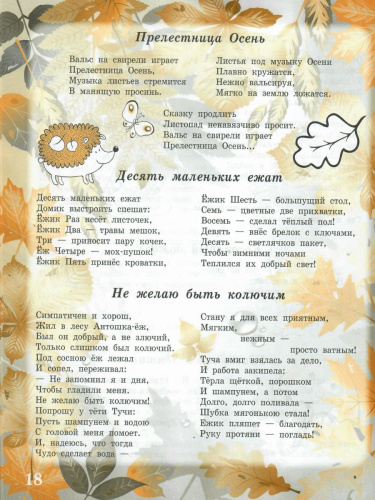 Прелестница Осень
Вальс на свирели играет
Прелестница Осень,
Музыка листьев стремится
В манящую просинь.
Листья под музыку Осени
Плавно кружатся,
Нежно вальсируя,
Мягко на землю ложатся.
Сказку продлить
Листопад ненавязчиво просит.
Вальс на свирели играет
Прелестница Осень...
Десять маленьких ежат
Десять маленьких ежат
Домик выстроить спешат:
Ёжик Раз несёт листочек,
Ёжик Два — травы мешок,
Три — приносит пару кочек,
Ёж Четыре — мох-пушок!
Ёжик Пять принёс кроватки,
Ёжик Шесть — большущий стол,
Семь — цветные две прихватки,
Восемь — сделал тёплый пол!
Девять — ввёс брелок с ключами,
Десять — светлячков пакет,
Чтобы зимними ночами
Теплился их добрый свет!
Не желаю быть колючим
Симпатичен и хорош,
Жил в лесу Антошка-ёж,
Был он добрый, а не злючий,
Только слишком был колючий.
Под сосною ёж лежал
И сопел, переживал:
— Не запомнил я и дня,
Чтобы гладили меня.
Не желаю быть колючим!
Попрошу у тёти Тучи:
Пусть шампунем и водою
С головой меня помоет.
И, надеюсь, что тогда
Чудо сделает вода —
Стану я для всех приятным,
Мягким,
нежным —
просто ватным!
Туча вмиг взялась за дело,
И работа закипела:
Тёрла щёткой, порошком
И шампунем, а потом
Долго, долго поливала —
Шубка мягонькою стала!
Ежик пляшет — благодать,
Руку протяни — погладь!
18